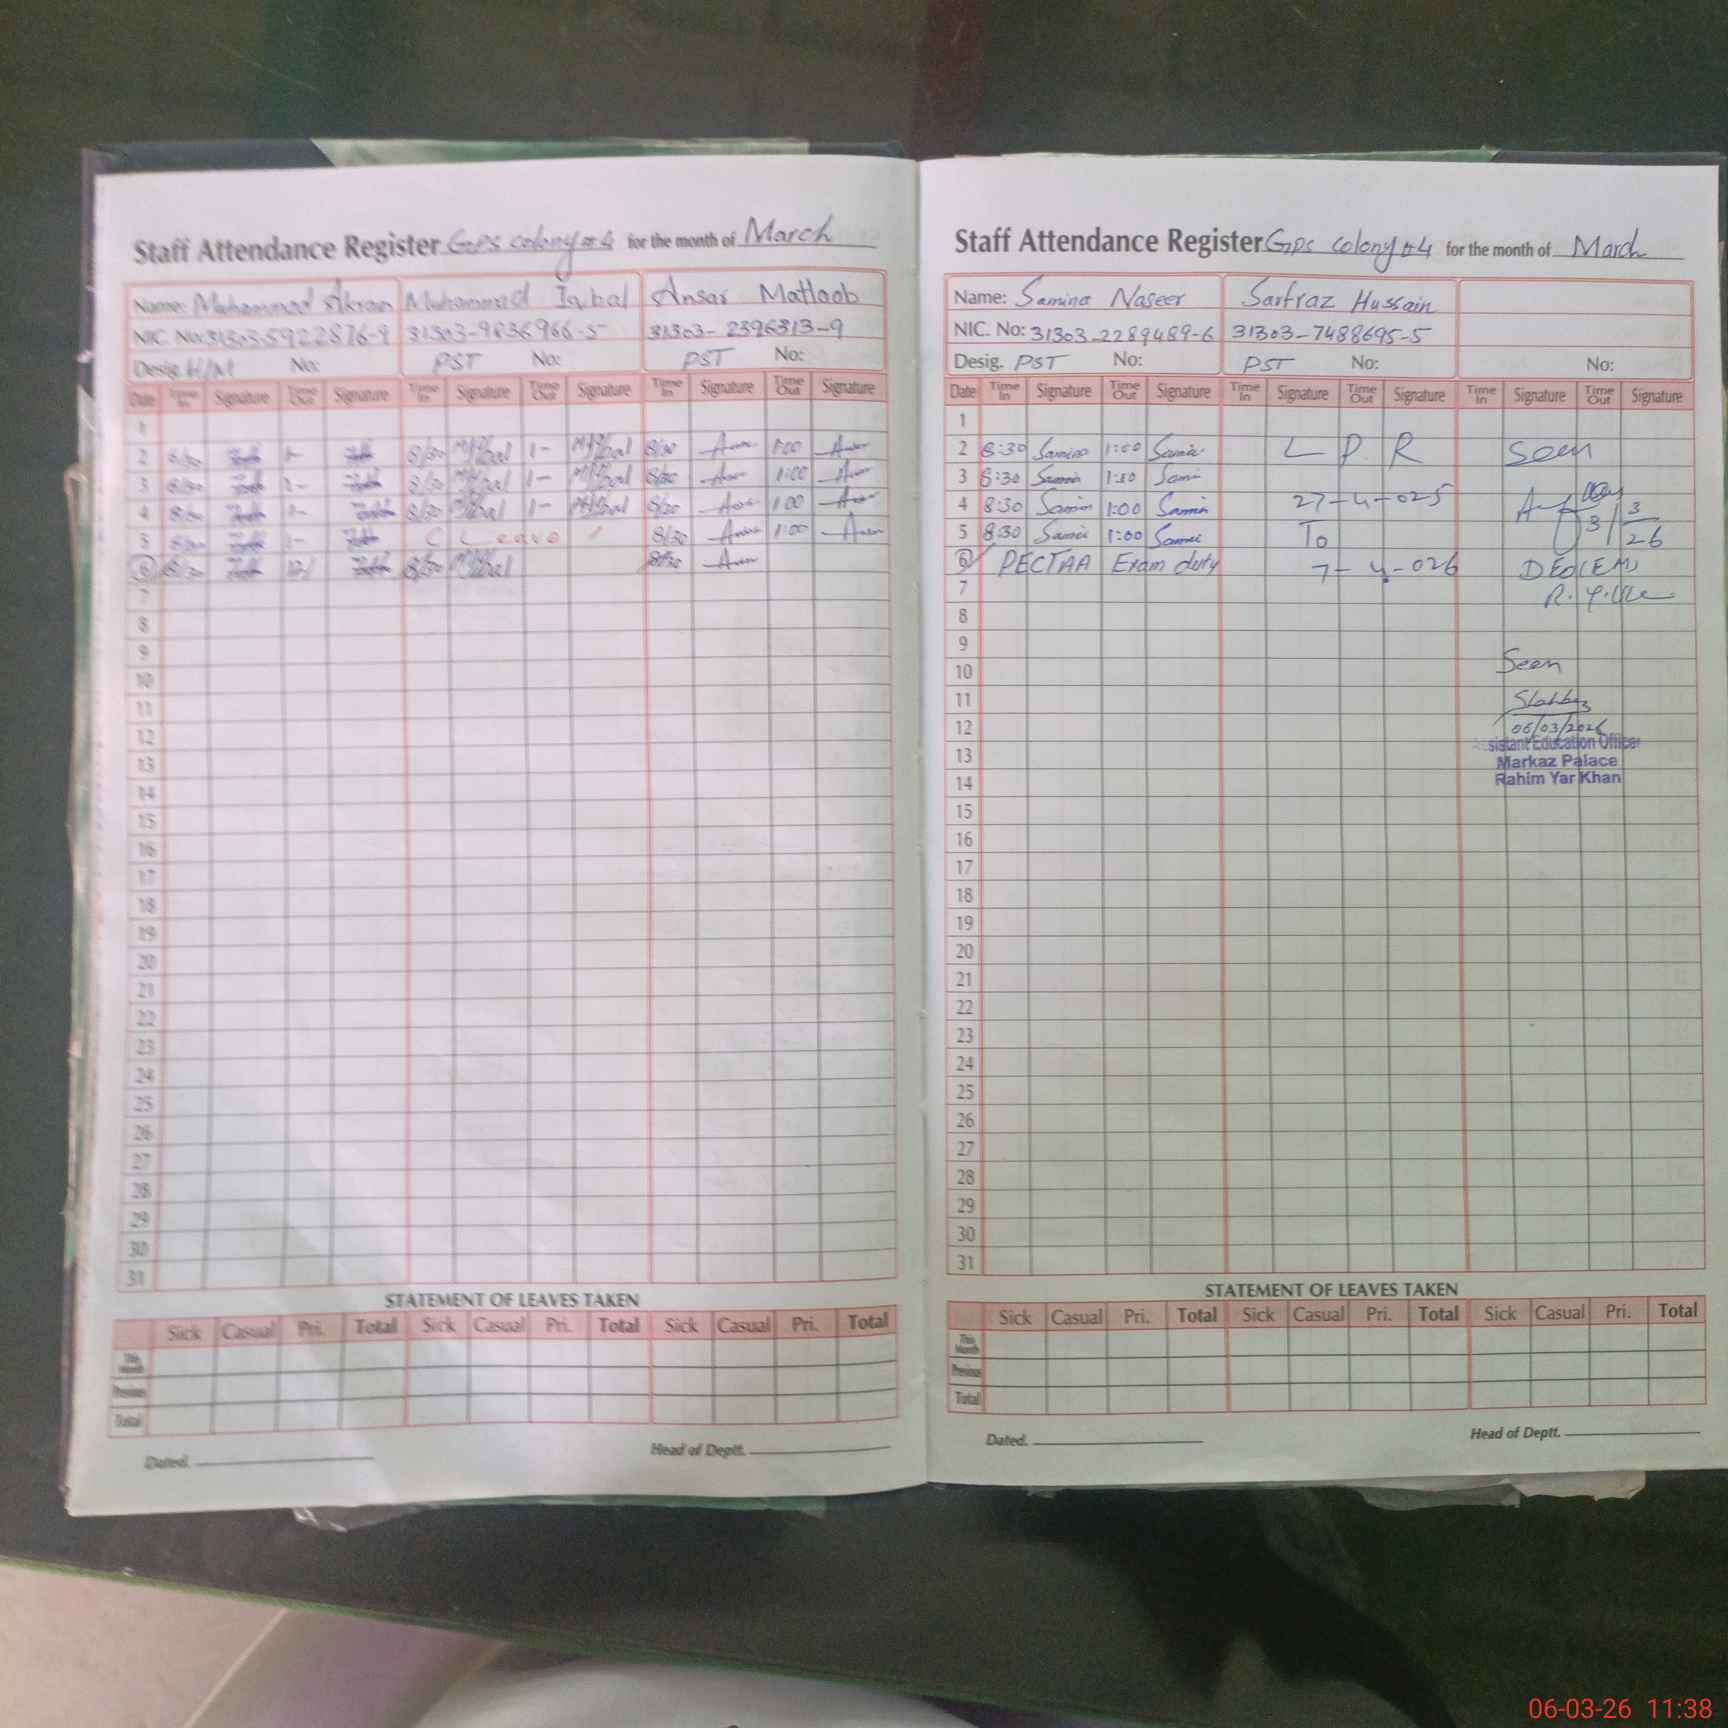 Staff Attendance Register GPS colony #4 for the month of March
Name: Muhammad Akram Muhammad Iqbal Ansar Matloob
NIC. No: 31303-5922876-9 31303-9636966-5 31303-2396313-9
Desig. H/M No: PST No: PST No:
Date Time In Signature Time Out Signature Time In Signature Time Out Signature Time In Signature Time Out Signature
1
2 8/30 1- 8/30 M Iqbal 1- M Iqbal 8/30 Ansar 1:00 Ansar
3 8/30 1- 8/30 M Iqbal 1- M Iqbal 8/30 Ansar 1:00 Ansar
4 8/30 1- 8/30 M Iqbal 1- M Iqbal 8/30 Ansar 1:00 Ansar
5 8/30 1- C Leave 8/30 Ansar 1:00 Ansar
6 8/30 8/30 M Iqbal 8/30 Ansar
7
8
9
10
11
12
13
14
15
16
17
18
19
20
21
22
23
24
25
26
27
28
29
30
31
STATEMENT OF LEAVES TAKEN
Sick Casual Pri. Total Sick Casual Pri. Total Sick Casual Pri. Total
This Month
Previous
Total
Dated. Head of Deptt.
Staff Attendance Register GPS colony #4 for the month of March
Name: Samina Naseer Sarfraz Hussain
NIC. No: 31303-2289489-6 31303-7488695-5
Desig. PST No: PST No: No:
Date Time In Signature Time Out Signature Time In Signature Time Out Signature Time In Signature Time Out Signature
1
2 8:30 Samina 1:00 Samina L P R Seen
3 8:30 Samina 1:10 Samina
4 8:30 Samina 1:00 Samina 27-4-025
5 8:30 Samina 1:00 Samina To 3/3/26
6 PECTAA Exam duty 7-4-026 DEO(EM)
7 R.Y.Khan
8
9
10 Seen
11 Shahbaz
12 06/03/2026
13 Assistant Education Officer
Markaz Palace
14 Rahim Yar Khan
15
16
17
18
19
20
21
22
23
24
25
26
27
28
29
30
31
STATEMENT OF LEAVES TAKEN
Sick Casual Pri. Total Sick Casual Pri. Total Sick Casual Pri. Total
This Month
Previous
Total
Dated. Head of Deptt.
06-03-26 11:38